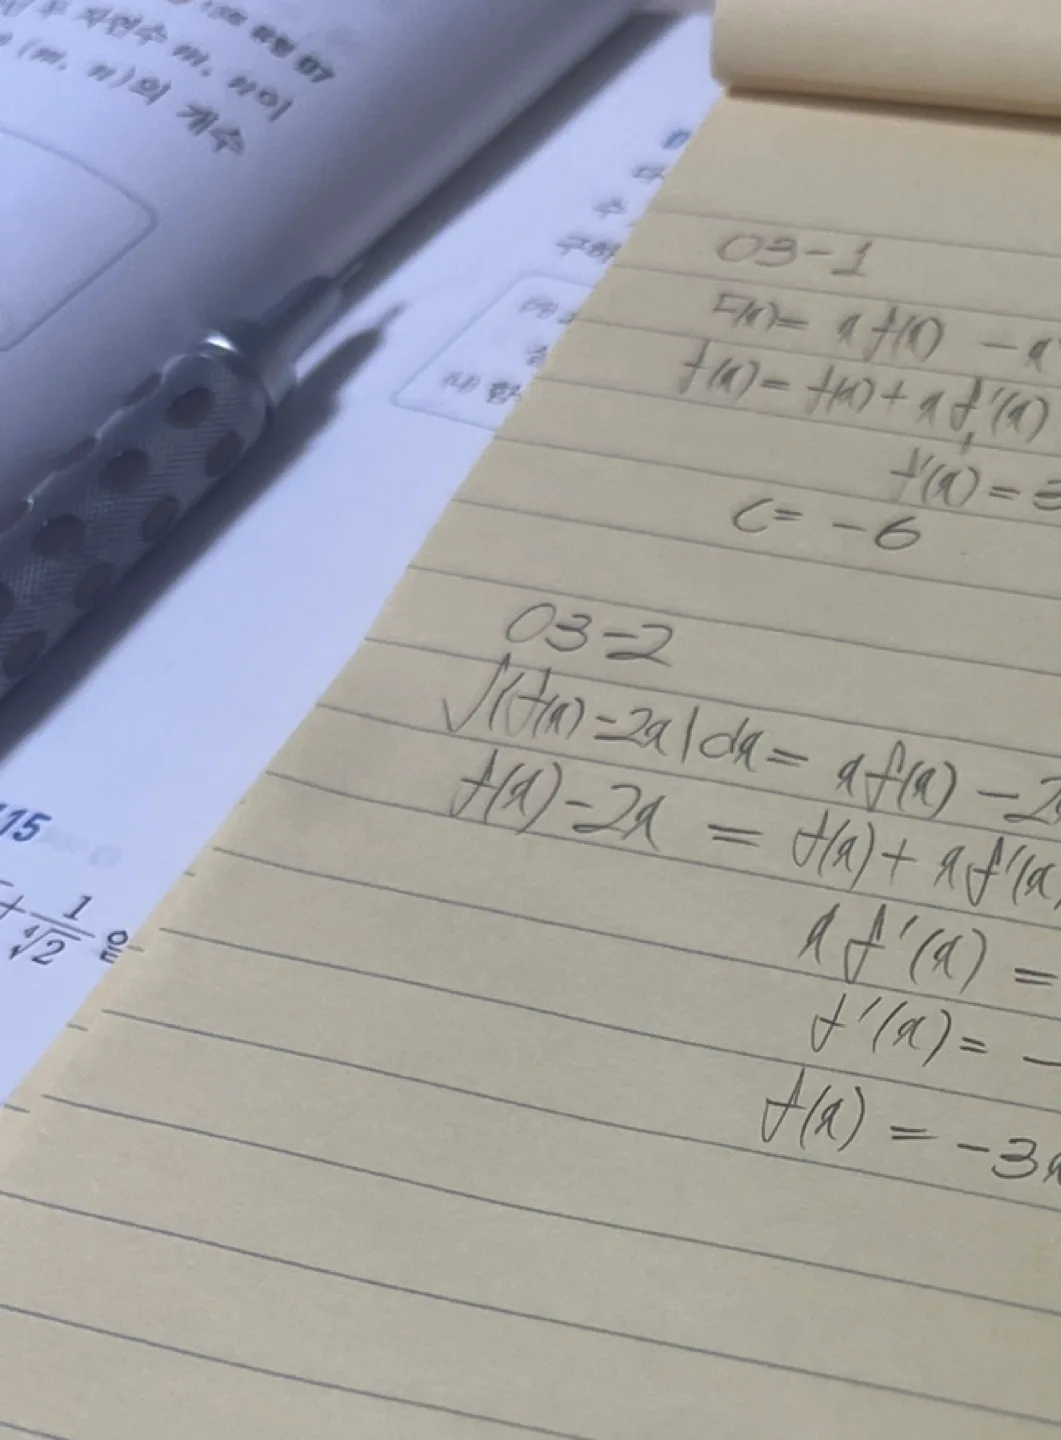 자연수 m, n이
(m, n)의 개수
15
+ 1/∜2 을
03-1
F(x)= x f(x) -x
f(x)= f(x)+ x f'(x)
f'(x)=3
C= -6
03-2
∫(f(x)-2x)dx= x f(x) -2x
f(x)-2x = f(x)+ x f'(x)
x f'(x) =
f'(x)= -
f(x) = -3x